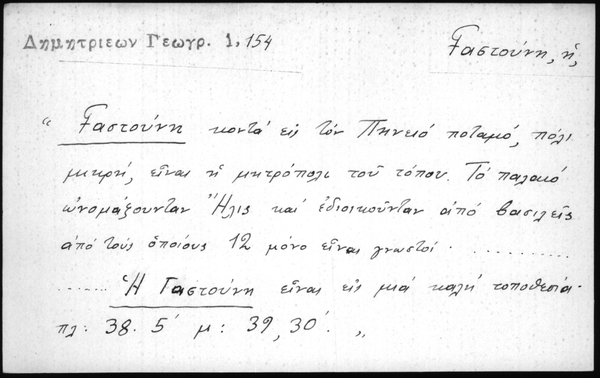 Δημητριεων Γεωγρ. 1, 154
Γαστούνη, ἡ,
“ Γαστούνη κοντά εἰς τὸν Πηνειό ποταμό, πόλι
μικρή, εἶναι ἡ μητρόπολι τοῦ τόπου. Τό παλαιό
ὠνομάζουνταν Ἦλις καί ἐδιοικοῦνταν ἀπό βασιλεῖς
ἀπό τούς ὁποίους 12 μόνο εἶναι γνωστοί . ..........
...... Ἡ Γαστούνη εἶναι εἰς μιά καλή τοποθεσία.
πλ: 38. 5´ μ: 39, 30´. „